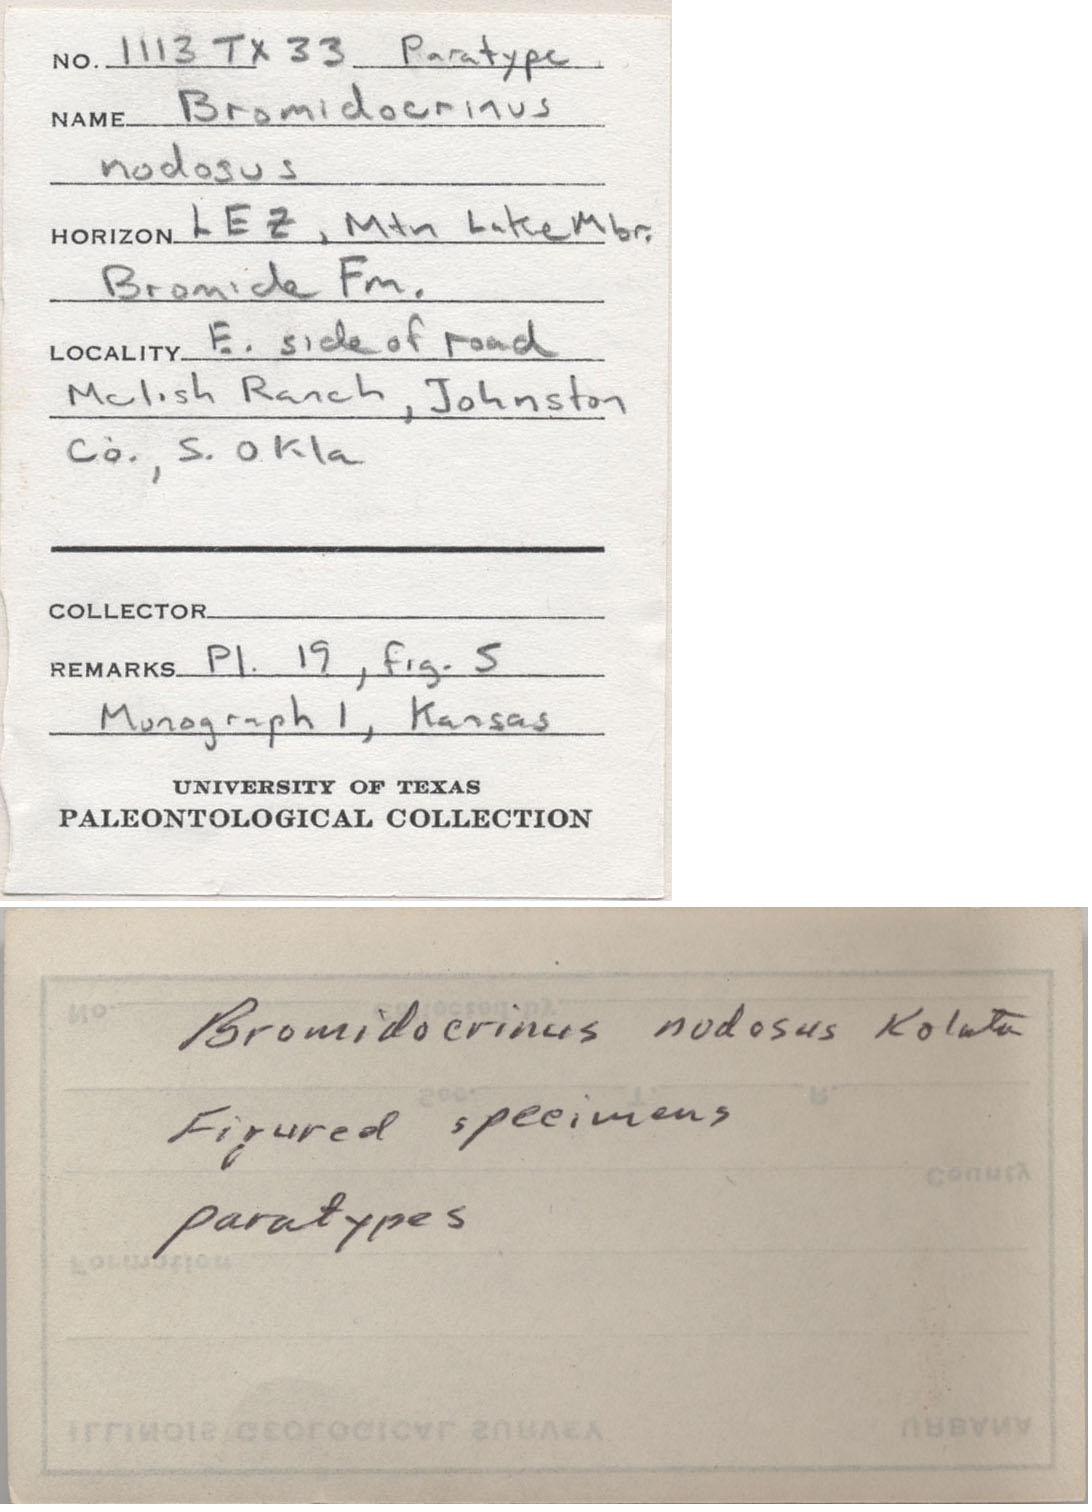 NO. 1113 TX 33 Paratype
NAME Bromidocrinus
nodosus
HORIZON LEZ, Mtn Lake Mbr.
Bromide Fm.
LOCALITY E. side of road
Mclish Ranch, Johnston
Co., S. Okla
COLLECTOR
REMARKS Pl. 19, fig. 5
Monograph 1, Kansas
UNIVERSITY OF TEXAS
PALEONTOLOGICAL COLLECTION
No. Collected by
Bromidocrinus nodosus Kolata
Sec. T. R.
Figured specimens
County
paratypes
Formation
ILLINOIS GEOLOGICAL SURVEY URBANA